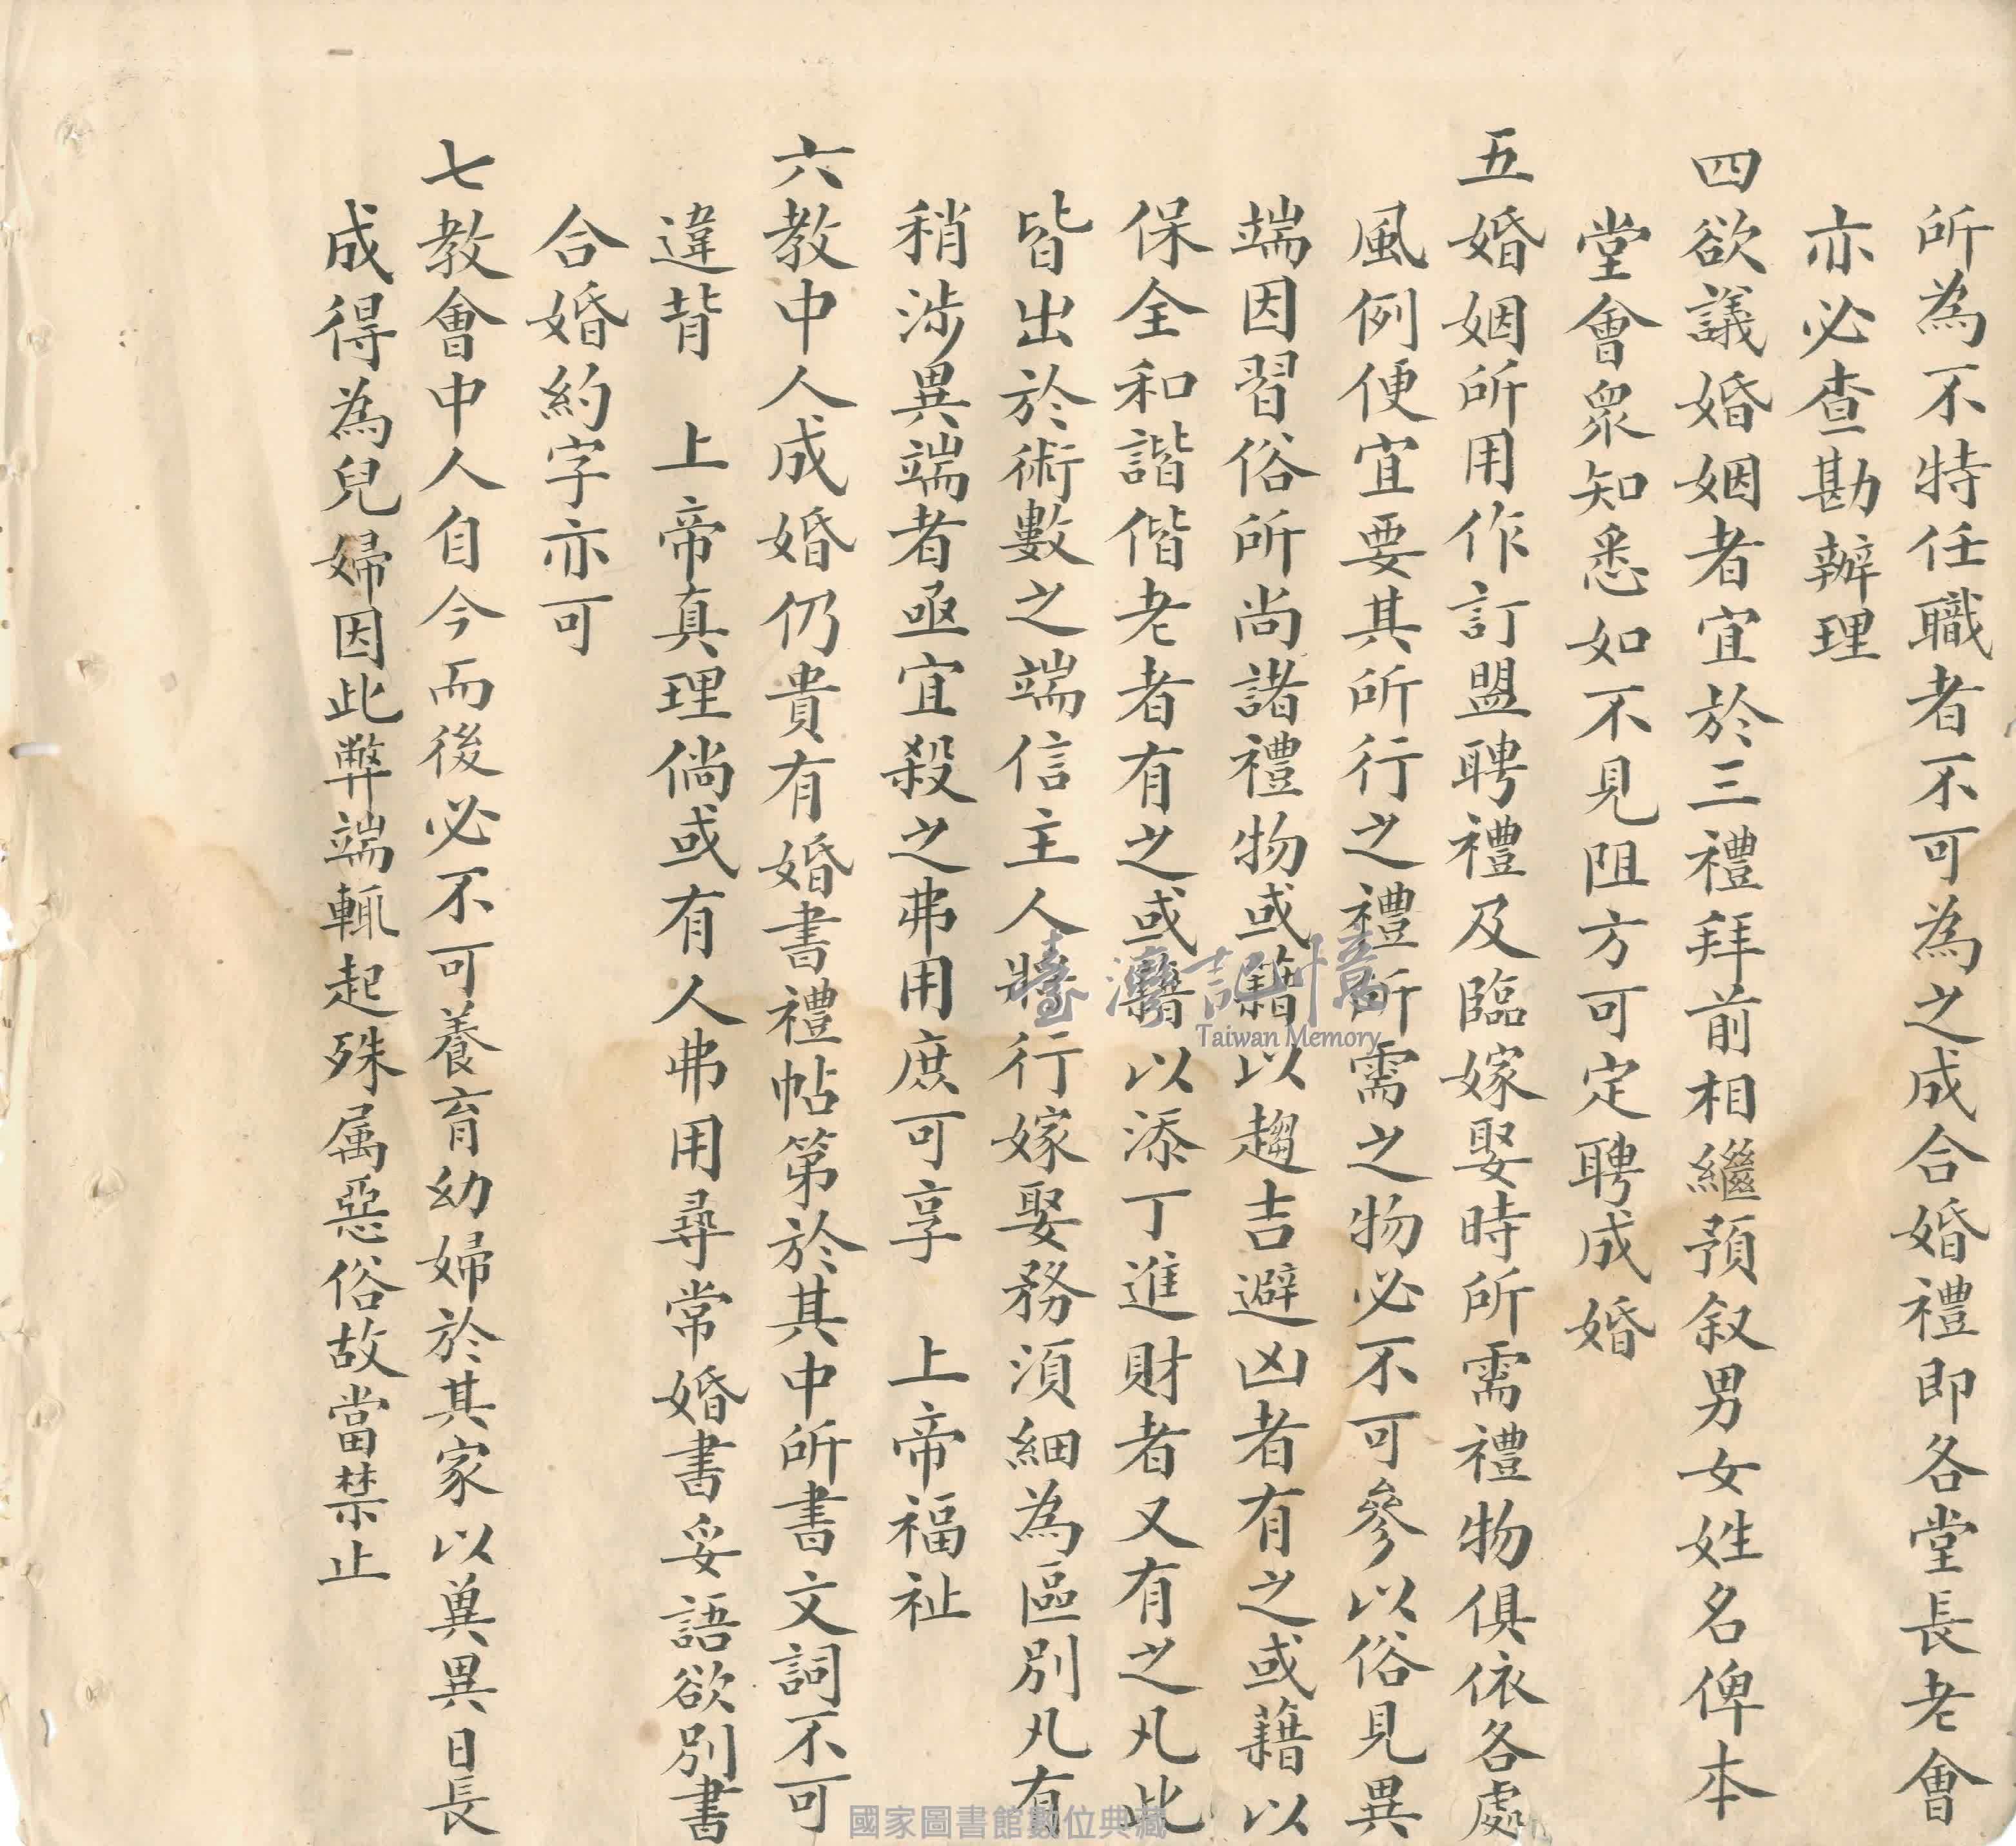 所為不特任職者不可為之成合婚禮即各堂長老會
亦必查勘辦理
四欲議婚姻者宜於三禮拜前相繼預叙男女姓名俾本
堂會眾知悉如不見阻方可定聘成婚
五婚姻所用作訂盟聘禮及臨嫁娶時所需禮物俱依各處
風例便宜要其所行之禮所需之物必不可參以俗見異
端因習俗所尚諸禮物或籍以趨吉避凶者有之或藉以
保全和諧偕老者有之或籍以添丁進財者又有之凡此
皆出於術數之端信主人將行嫁娶務須細為區別凡有
稍涉異端者亟宜殺之弗用庶可享　上帝福祉
六教中人成婚仍貴有婚書禮帖第於其中所書文詞不可
違背　上帝真理倘或有人弗用尋常婚書妥語欲別書
合婚約字亦可
七教會中人自今而後必不可養育幼婦於其家以兾異日長
成得為兒婦因此弊端輒起殊属惡俗故當禁止
臺灣記憶
Taiwan Memory
國家圖書館數位典藏